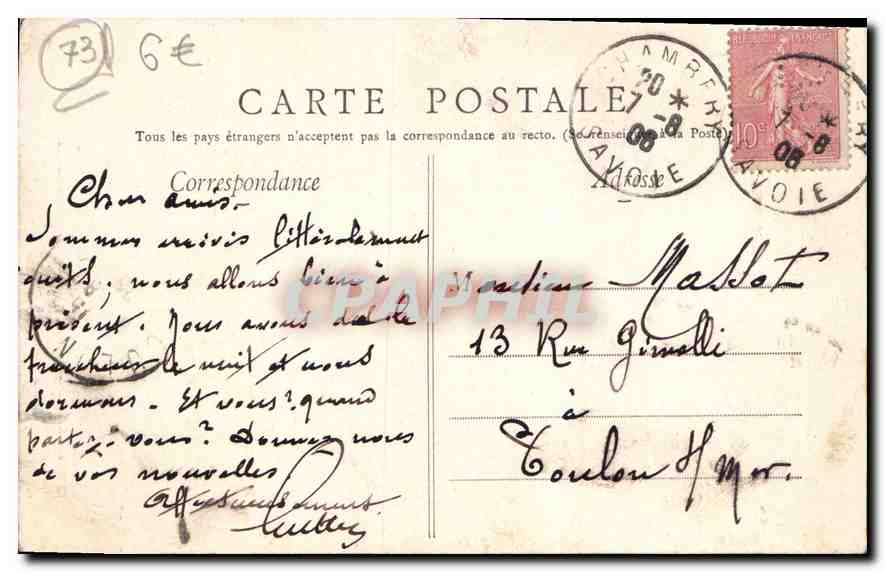 73
6€
CARTE POSTALE
Tous les pays étrangers n'acceptent pas la correspondance au recto. (Se renseigner à la Poste)
Correspondance
Adresse
CHAMBERY
20
7 - 8
06
SAVOIE
REPUBLIQUE FRANÇAISE
10c
7 - 8
06
SAVOIE
Chers amis -
Sommes arrivés littéralement
cuits, nous allons bien à
présent. Nous avons de la
fraîcheur la nuit et nous
dormons. Et vous? quand
partez-vous? Donnez nous
de vos nouvelles
Affectueusement
CPAPHIL
Monsieur Massot
13 Rue Gimelli
à
Toulon s/ Mer.